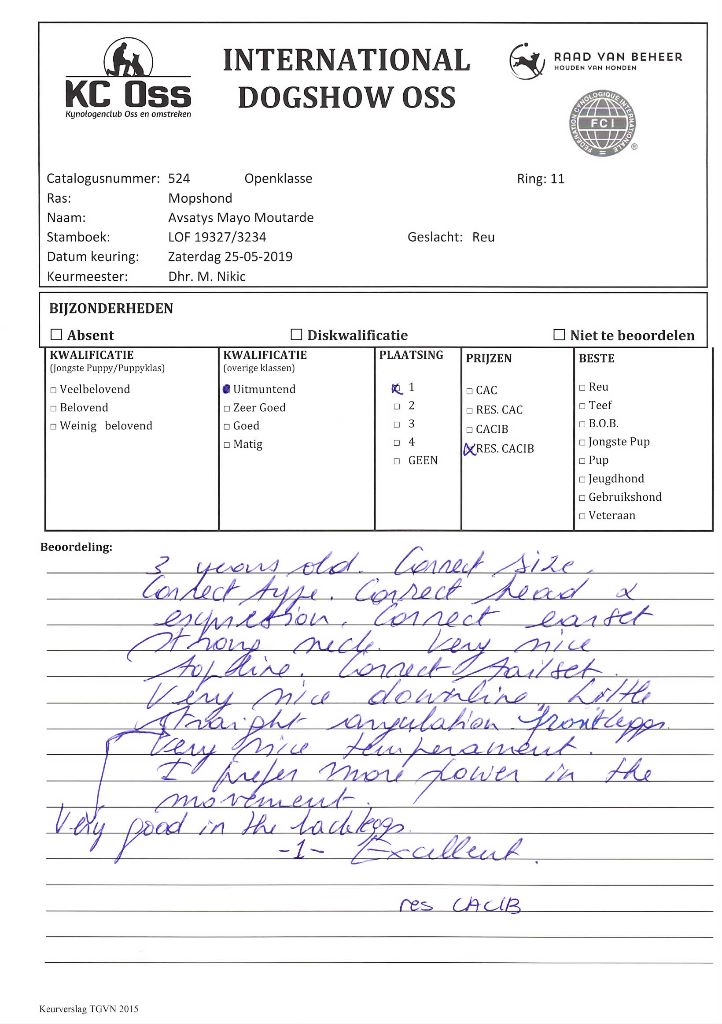 KC Oss
Kynologenclub Oss en omstreken
INTERNATIONAL
DOGSHOW OSS
RAAD VAN BEHEER
HOUDEN VAN HONDEN
FEDERATION CYNOLOGIQUE INTERNATIONALE
FCI
®
Catalogusnummer: 524 Openklasse Ring: 11
Ras: Mopshond
Naam: Avsatys Mayo Moutarde
Stamboek: LOF 19327/3234 Geslacht: Reu
Datum keuring: Zaterdag 25-05-2019
Keurmeester: Dhr. M. Nikic
BIJZONDERHEDEN
☐ Absent ☐ Diskwalificatie ☐ Niet te beoordelen
KWALIFICATIE
(Jongste Puppy/Puppyklas)
☐ Veelbelovend
☐ Belovend
☐ Weinig belovend
KWALIFICATIE
(overige klassen)
☒ Uitmuntend
☐ Zeer Goed
☐ Goed
☐ Matig
PLAATSING
☒ 1
☐ 2
☐ 3
☐ 4
☐ GEEN
PRIJZEN
☐ CAC
☐ RES. CAC
☐ CACIB
☒ RES. CACIB
BESTE
☐ Reu
☐ Teef
☐ B.O.B.
☐ Jongste Pup
☐ Pup
☐ Jeugdhond
☐ Gebruikshond
☐ Veteraan
Beoordeling:
3 years old. Correct size.
Correct type. Correct head &
expression. Correct earset
Strong neck. Very nice
topline. Correct tailset.
Very nice downline. Little
straight angulation frontleggs.
Very nice temperament.
I prefer more power in the
movement.
Very good in the backleggs.
-1- Excellent.
res CACIB
Keurverslag TGVN 2015